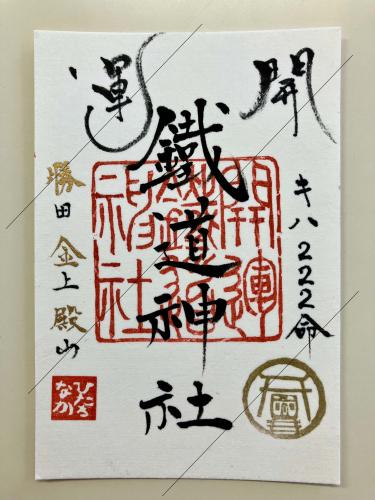 開運
キハ222命
鐵道神社
開運
鐵道
神社
勝田 金上 殿山
ひたち
なか